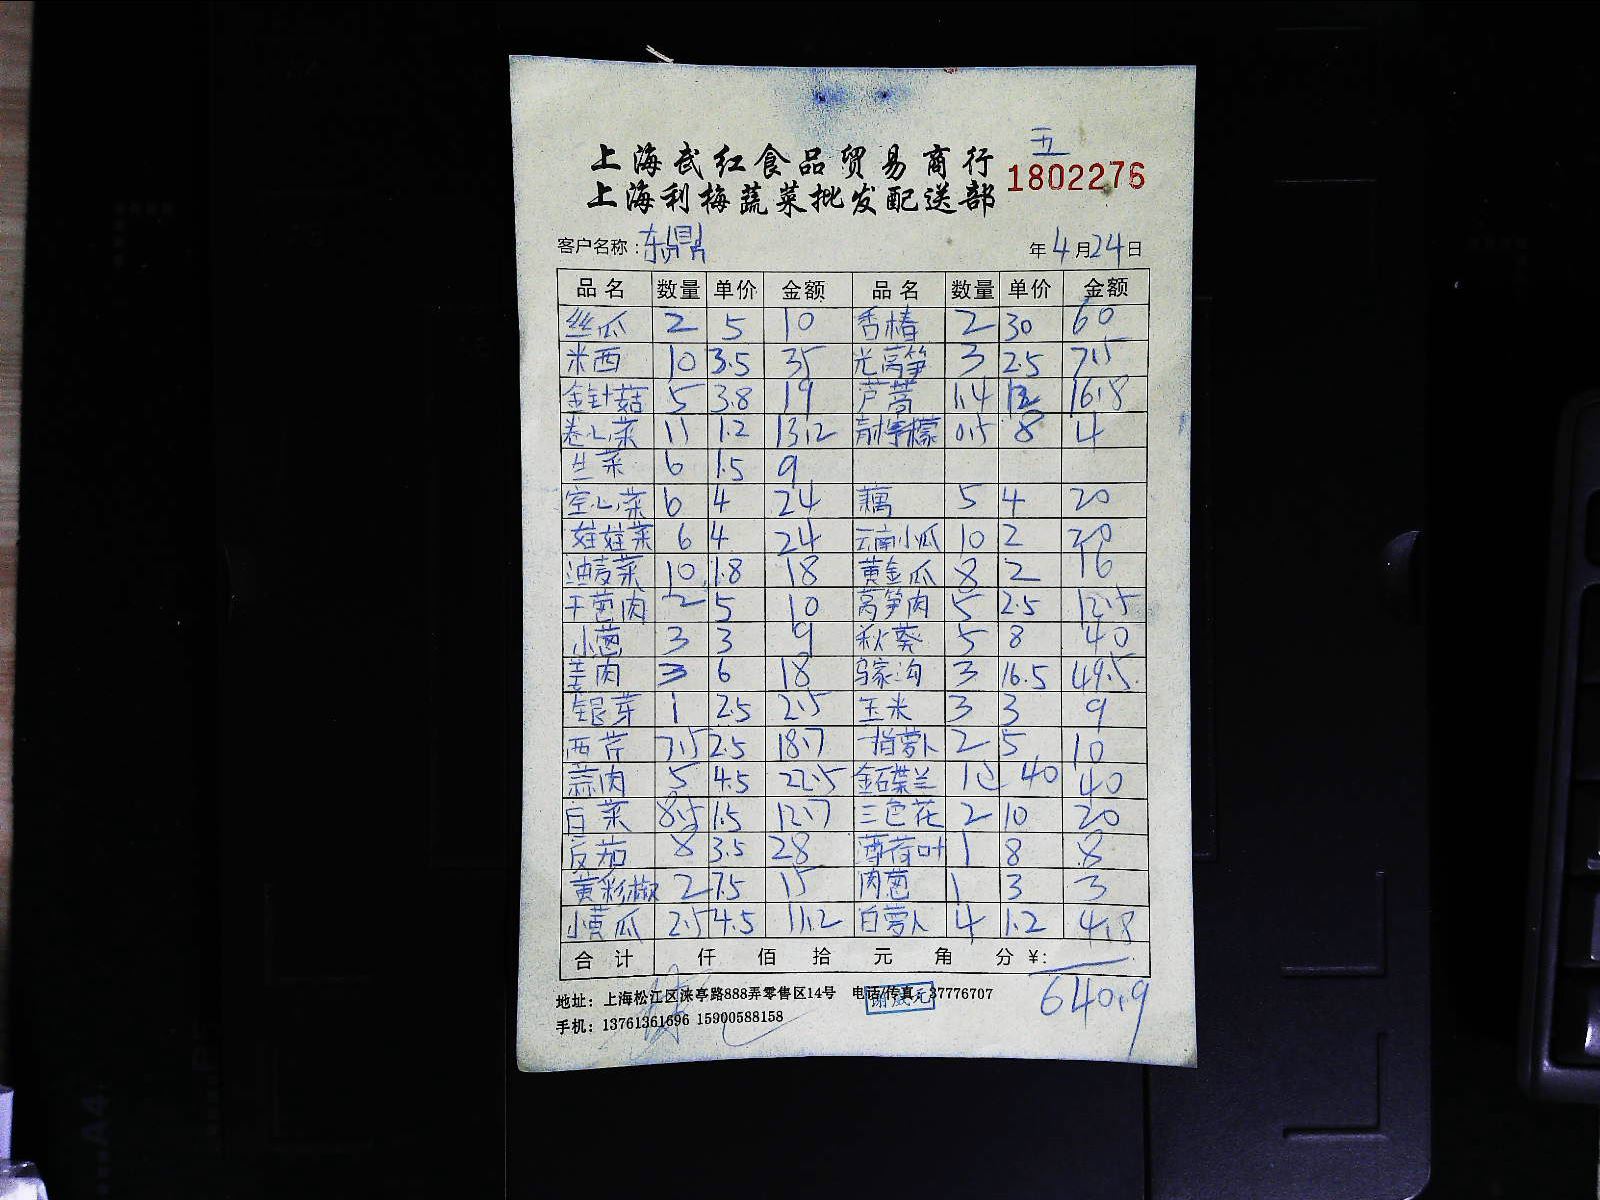 五
上海武红食品贸易商行
上海利梅蔬菜批发配送部
1802276
客户名称：东鼎 年 4 月 24 日
品名 数量 单价 金额 品名 数量 单价 金额
丝瓜 2 5 10 香椿 2 30 60
米西 10 3.5 35 光莴笋 3 2.5 7.5
金针菇 5 3.8 19 芦蒿 1.4 12 16.8
卷心菜 11 1.2 13.2 青柠檬 0.5 8 4
生菜 6 1.5 9
空心菜 6 4 24 藕 5 4 20
娃娃菜 6 4 24 云南小瓜 10 2 20
油麦菜 10 1.8 18 黄金瓜 8 2 16
干葱肉 2 5 10 莴笋肉 5 2.5 12.5
小葱 3 3 9 秋葵 5 8 40
姜肉 3 6 18 马家沟 3 16.5 49.5
银芽 1 2.5 2.5 玉米 3 3 9
西芹 7.5 2.5 18.7 一指萝卜 2 5 10
蒜肉 5 4.5 22.5 金石碟兰 1 40 40
白菜 8.5 1.5 12.7 三色花 2 10 20
反茄 8 3.5 28 薄荷叶 1 8 8
黄彩椒 2 7.5 15 肉葱 1 3 3
小黄瓜 2.5 4.5 11.2 白萝卜 4 1.2 4.8
合计 仟 佰 拾 元 角 分 ¥:
640.9
地址：上海松江区涞亭路888弄零售区14号 电话/传真：37776707
手机：13761361696 15900588158